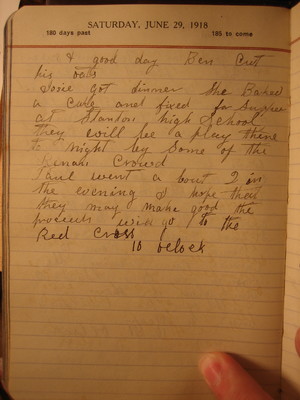 SATURDAY, JUNE 29, 1918
180 days past 185 to come
A good day Ben Cut
his oats
Josie got dinner She Baked
a Cake and fixed for
at Standon high School
they will be a play there
to night by Some of the
Crowd
Paul went a bout 2 in
the evening I hope that
they may make good the
proceeds will go to the
Red Cross
10 oclock